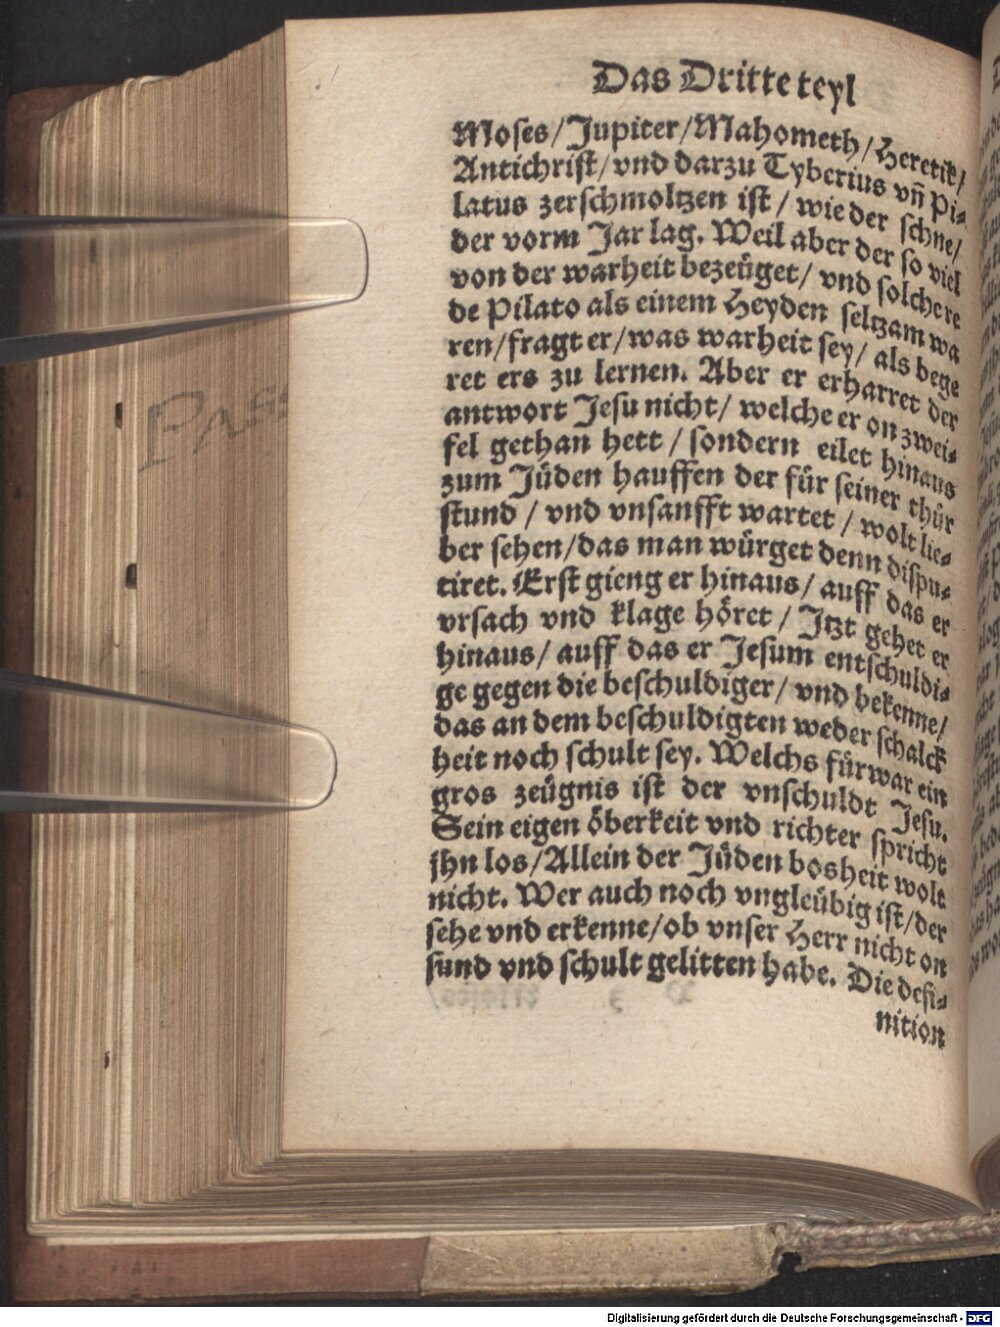 Das Dritte teyl
Moses/Jupiter/Mahometh/Heretik/
Antichrist/vnd darzu Tyberius vn̄ Pi-
latus zerschmoltzen ist/wie der schne/
der vorm Jar lag. Weil aber der so viel
von der warheit bezeüget/vnd solche re
de Pilato als einem Heyden seltzam wa
ren/fragt er/was warheit sey/als bege
ret ers zu lernen. Aber er erharret der
antwort Jesu nicht/welche er on zwei-
fel gethan hett/sondern eilet hinaus
zum Jüden hauffen der für seiner thür
stund/vnd vnsanfft wartet/wolt lie-
ber sehen/das man würget denn dispu-
tiret. Erst gieng er hinaus/auff das er
vrsach vnd klage höret/Jtzt gehet er
hinaus/auff das er Jesum entschuldi-
ge gegen die beschuldiger/vnd bekenne/
das an dem beschuldigten weder schalck
heit noch schult sey. Welchs fürwar ein
gros zeügnis ist der vnschuldt Jesu.
Sein eigen öberkeit vnd richter spricht
jhn los/Allein der Jüden bosheit wolt
nicht. Wer auch noch vngleübig ist/der
sehe vnd erkenne/ob vnser Herr nicht on
sund vnd schult gelitten habe. Die defi-
nition
PAS
Digitalisierung gefördert durch die Deutsche Forschungsgemeinschaft - DFG